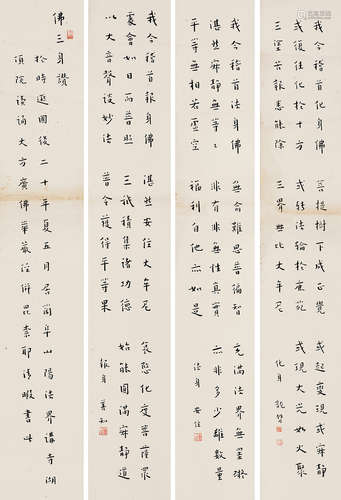 我今稽首化身佛 菩提樹下成正覺 或起變現或寂靜
或復往化於十方 或轉法輪於鹿苑 或現大光如火聚
三塗苦報悉能除 三界無比大牟尼 化身
我今稽首法身佛 無喻難思普徧智 充滿法界無罣礙
湛然寂靜無 非有非無性真實 亦非多少離數量
平等無相若虛空 福利自他亦如是 法身 安住
我今稽首報身佛 湛然安住大牟尼 哀愍化度菩薩眾
處會如日而普照 三祇積集諸功德 始能圓滿寂靜道
以大音聲談妙法 普令獲得平等果 報身 善知
佛三身讚
於時遜國後二十年夏五月居蘭阜山陽法界講寺湖
院讀誦大方廣佛華嚴 耶法暇書此